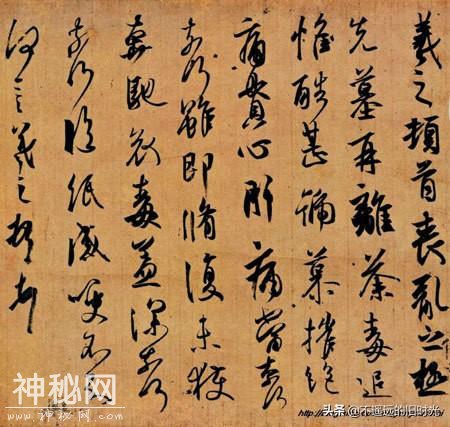 羲之頓首喪亂之極
先墓再離荼毒追
惟酷甚號慕摧絕
痛貫心肝痛當奈何
奈何雖即脩復未獲
奔馳哀毒益深奈何
奈何臨紙感哽不知
何言羲之頓首
神秘网
头条 @不遥远的旧时光